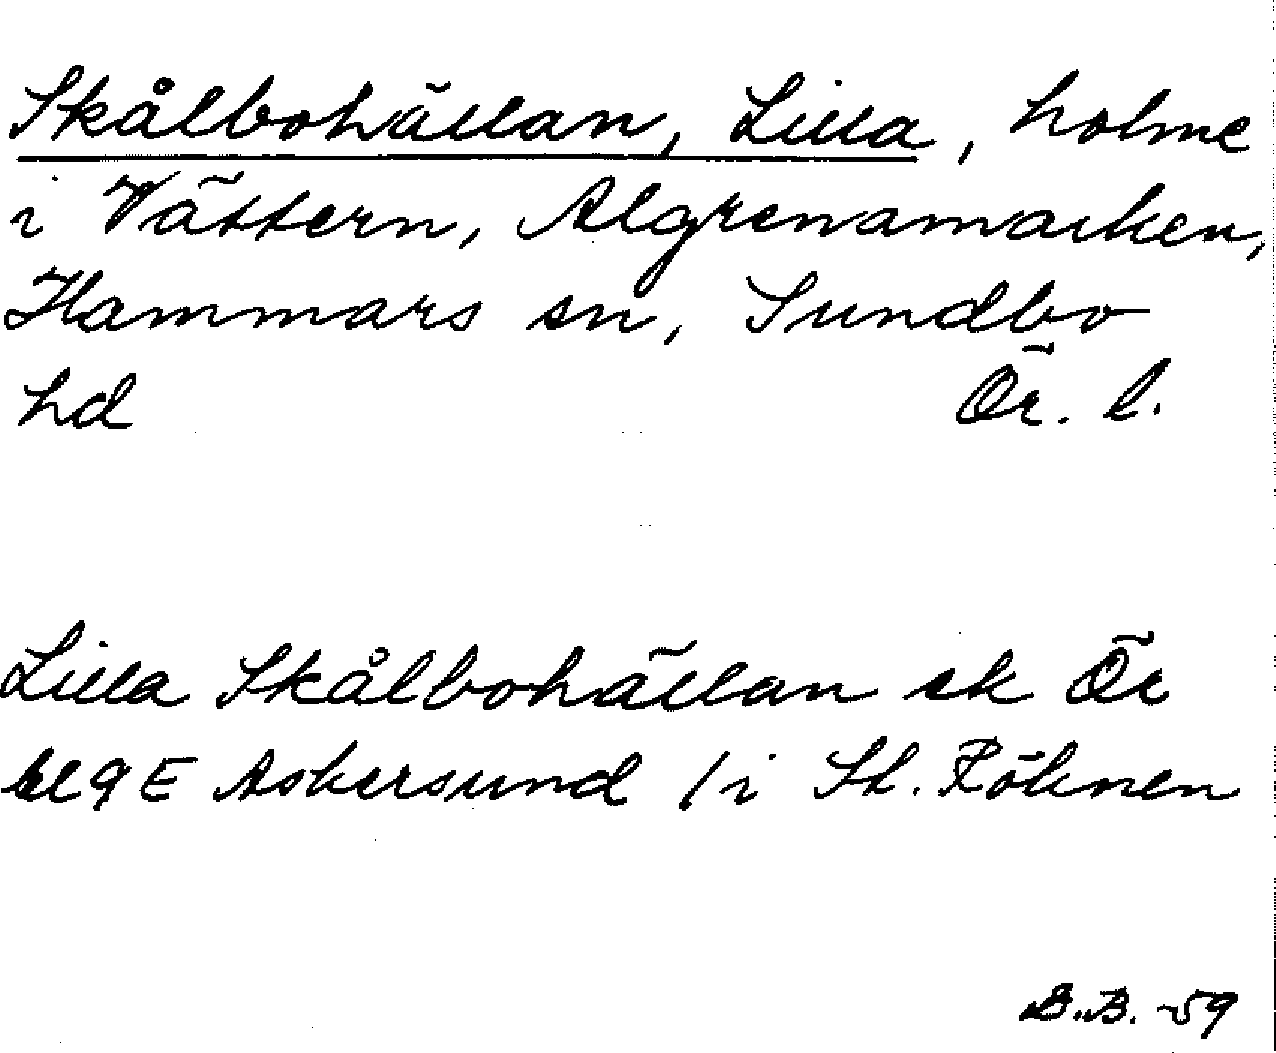 Skålbohällan, Lilla, holme
i Vättern, Algrenamarken,
Hammars sn, Sundbo
hd Ör. l.
Lilla Skålbohällan ek Ör
bl 9 E Askersund / i St. Röknen
B.B. -59